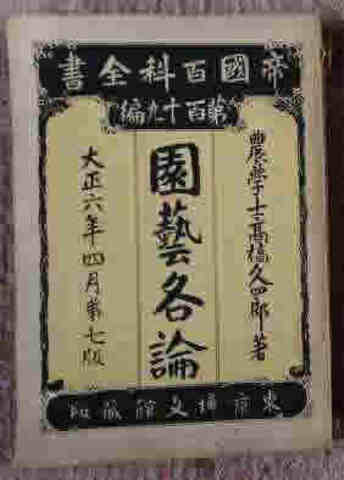 帝國百科全書
第百十九編
農學士高橋久四郎著
園藝各論
大正六年四月第七版
東京博文館蔵版